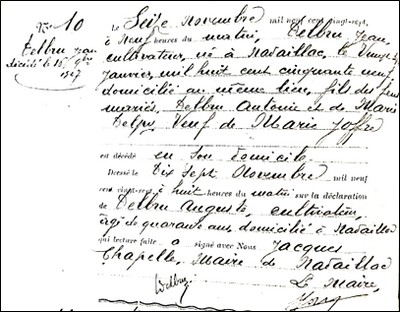 No 10
Delbru Jean
décédé le 15 9bre
1927
Le Seize Novembre mil neuf cent vingt-sept,
à neuf heures du matin, Delbru Jean,
cultivateur, né à Nadaillac, le Vingt
Janvier, mil huit cent cinquante neuf,
domicilié au même lieu, fils des feus
mariés, Delbru Antoine et de Marie
Delpy Veuf de Marie Joffre
est décédé en son domicile
Dressé le Dix Sept Novembre mil neuf
cent vingt-sept à huit heures du matin sur la déclaration
de Delbru Auguste, cultivateur,
âgé de quarante ans domicilié à Nadaillac
qui lecture faite a signé avec Nous Jacques
Chapelle, Maire de Nadaillac
Le Maire,
Delbru